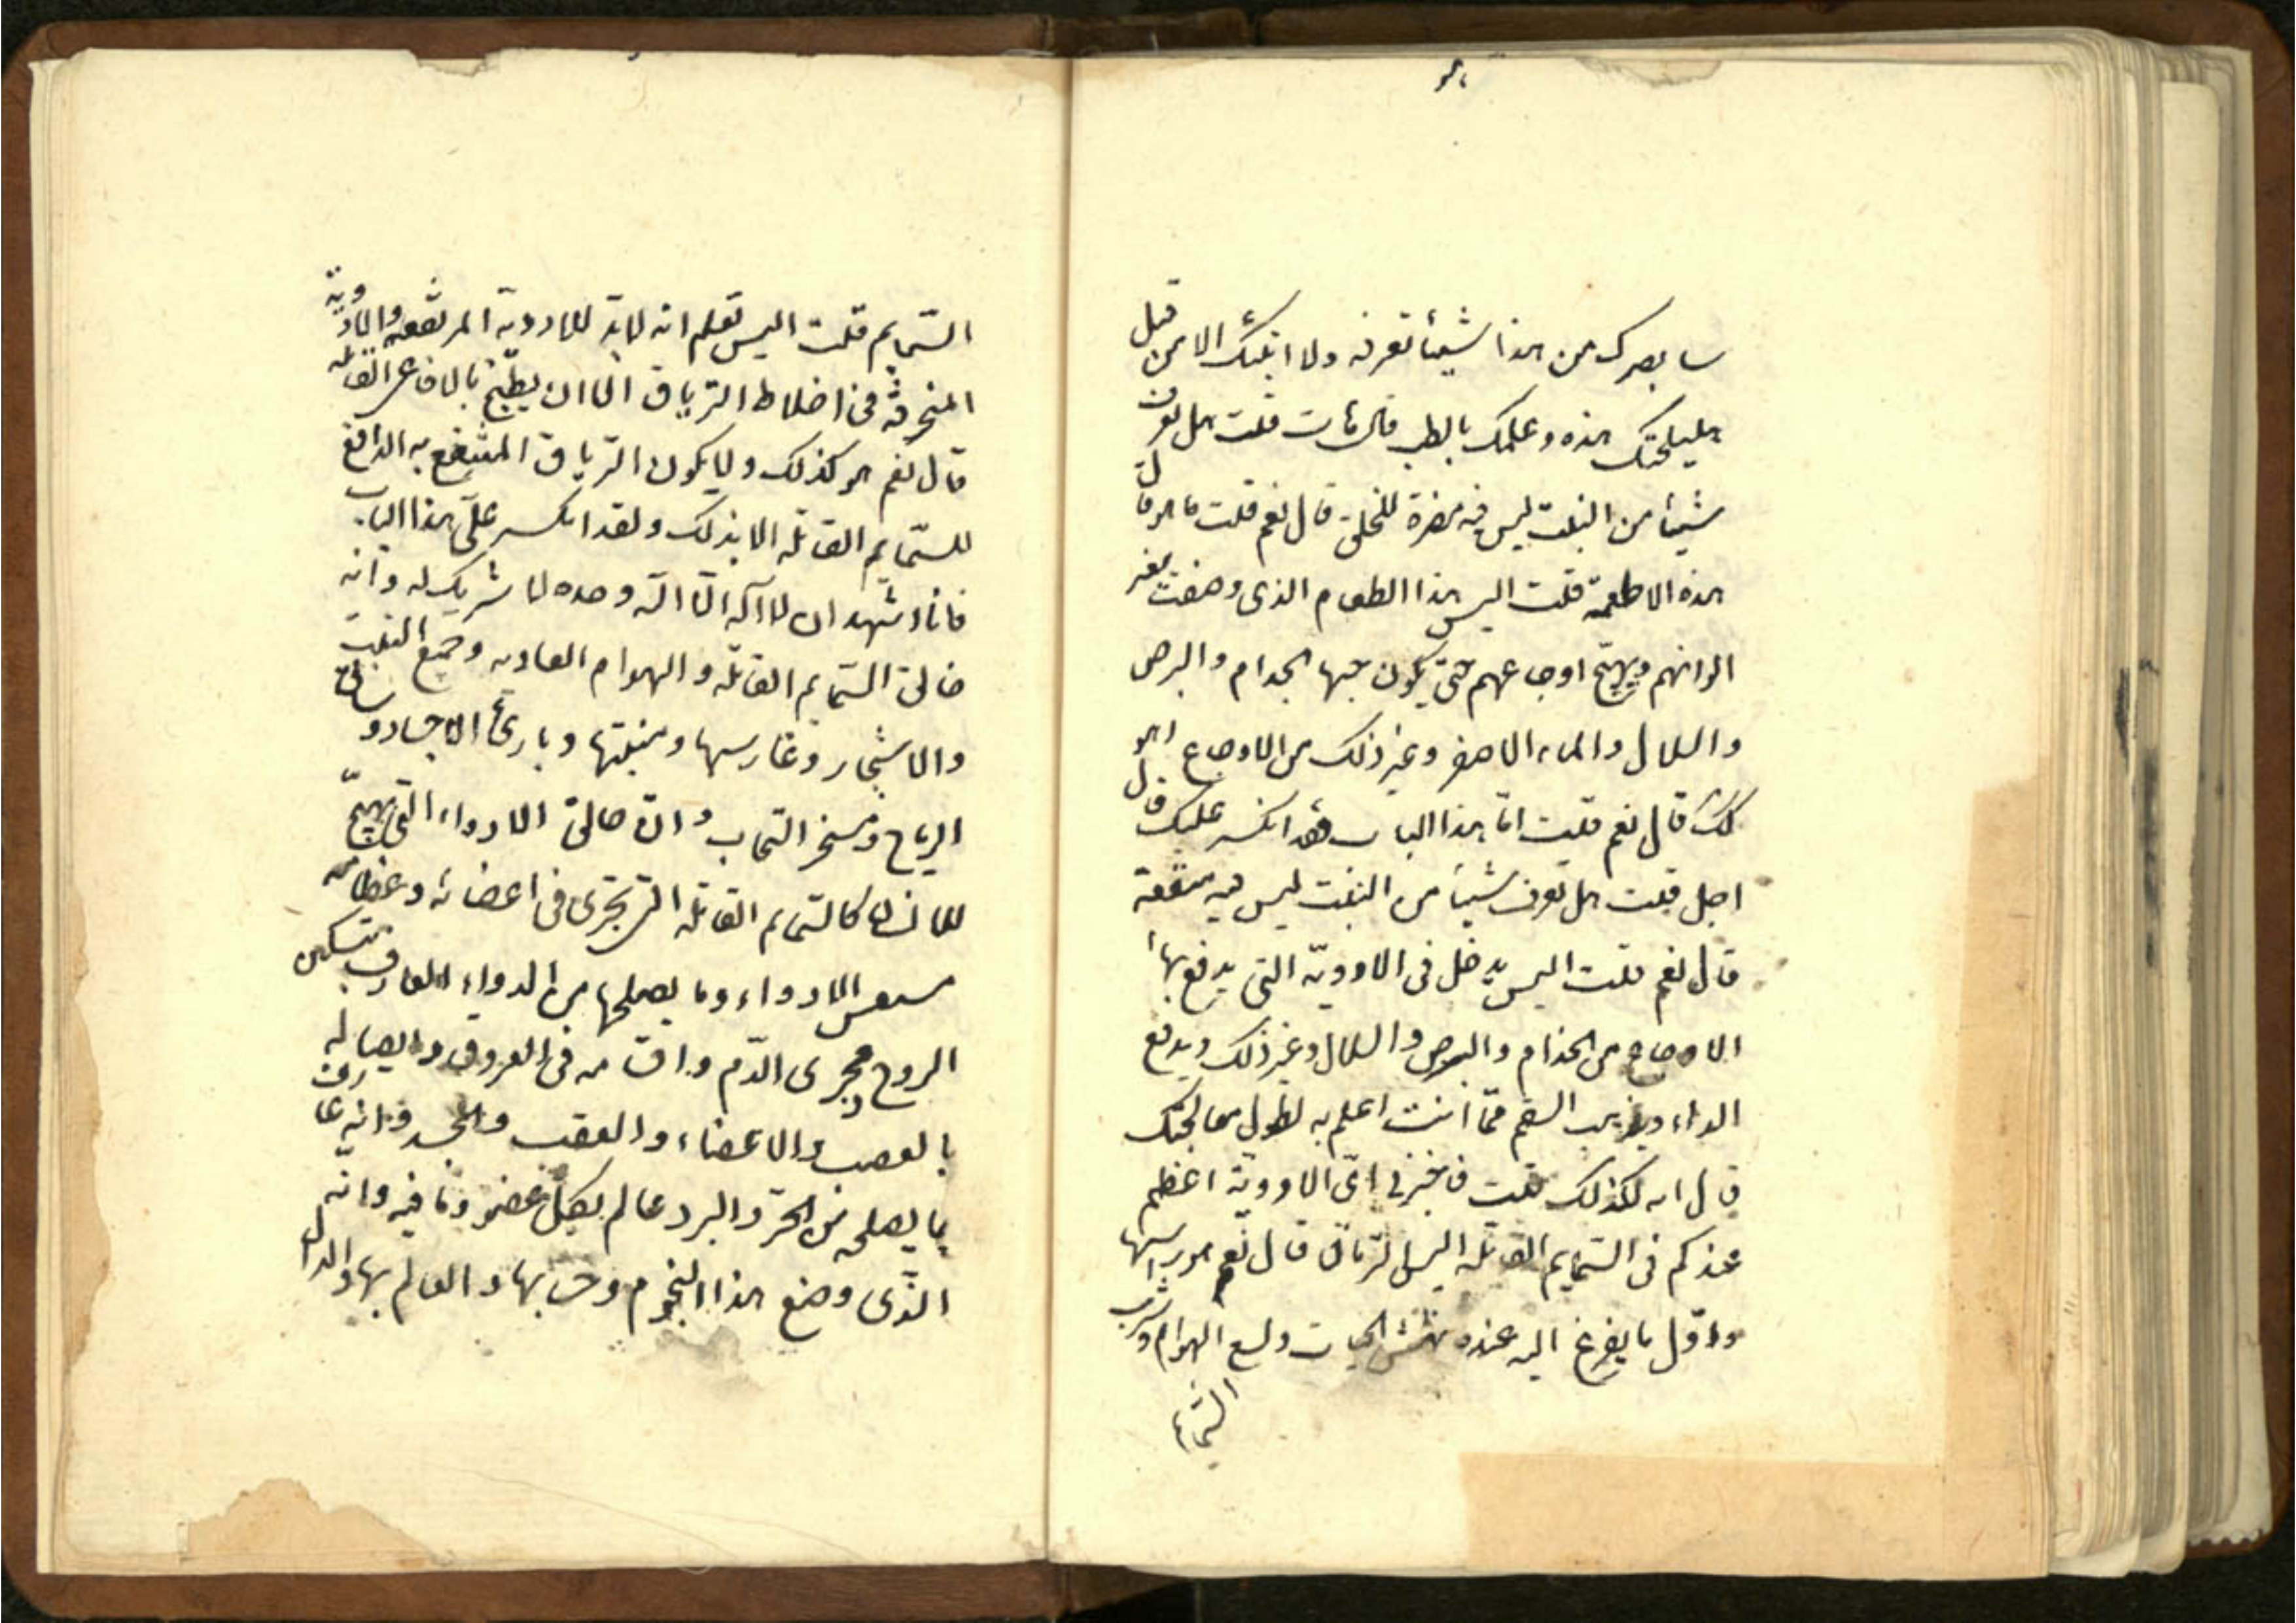 سابصرك من هذا شيئا تعرفه ولا اتيتك الا من قبل
هليلجتك هذه وعلمك بالطب قال هات قلت هل تعرف
شيئا من النبت ليس فيه مضرة للخلق قال نعم قلت ما هو قال
هذه الاطعمة قلت اليس هذا الطعام الذى وصفت يغير
الوانهم ويهيج اوجاعهم حتى يكون منها الجذام والبرص
والسلال والماء الاصفر وغير ذلك من الاوجاع اهو
كك قال نعم قلت امّا هذا الباب فقد انكسر عليك قال
اجل قلت هل تعرف شيئا من النبت ليس فيه منفعة
قال نعم قلت اليس يدخل فى الادوية التى يدفع بها
الاوجاع من الجذام والبرص والسلال وغير ذلك ويدفع
الداء ويذهب السقم ممّا انت اعلم به لطول معالجتك
قال انه لكذلك قلت فاخبرنى اىّ الادوية اعظم
عندكم فى السّمايم القاتله اليس الترياق قال نعم هو راسها
واوّل ما يفرغ اليه عند نهش الحيات ولسع الهوام وشرب
السّمايم
السّمايم قلت اليس تعلم انه لابدّ للادوية المرتفعه والادوية
المنحرقه فى اخلاط الترياق الا ان يطبّخ بالافاعى القاتله
قال نعم هو كذلك ولايكون الترياق المنتفع به الدافع
للسّمايم القاتله الا بذلك ولقد انكسر علىّ هذا الباب
فانا اشهد ان لا اله الّا الله وحده لا شريك له وانه
خالق السّمايم القاتله والهوام العاديه وجميع النبت
والاشجار وغارسها ومنبتها وبارئ الاجساد وسائق
الرياح ومسخر السّحاب وانه خالق الادواء التى يهيّج
للانسان كالسّمايم القاتله التى تجرى فى اعضائه وعظامه
الادواء وما يصلحها من الدواء العارف بتسكين
الروح ومجرى الدّم واقسامه فى العروق وايصاله
بالعصب والاعضاء والعقب والجسد وانه عارف
بما يصلحه من الحرّ والبرد عالم بكلّ عضو وما فيه وانّه
الّذى وضع هذا النجوم وحسابها والعالم بها والدال